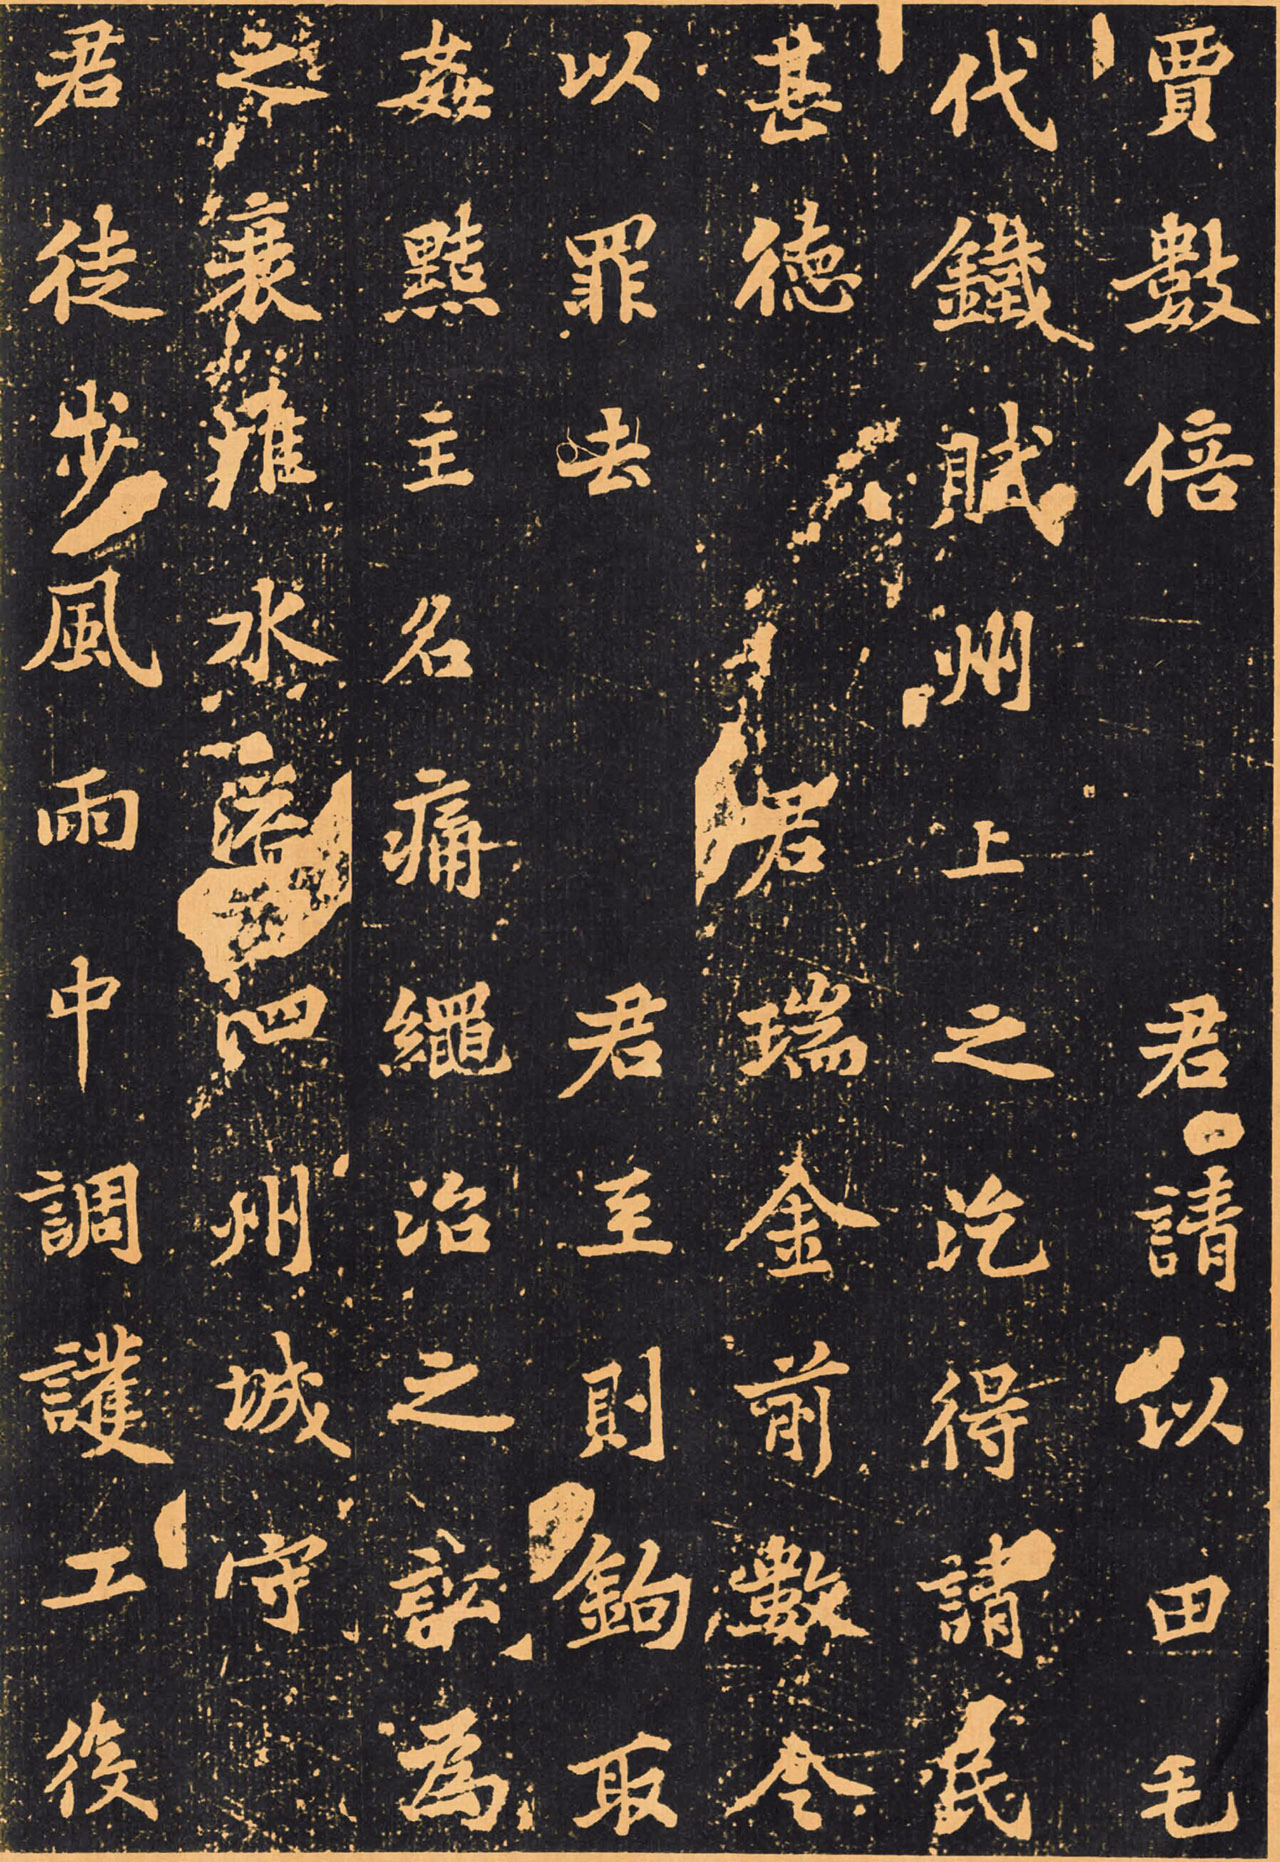 賈數倍君請以田毛
代鐵賦州上之訖得請民
甚德君瑞金前數令
以罪去君至則鉤取
姦黠主名痛繩治之訟為
之衰雍水溢四州城守
君徒步風雨中調護工役